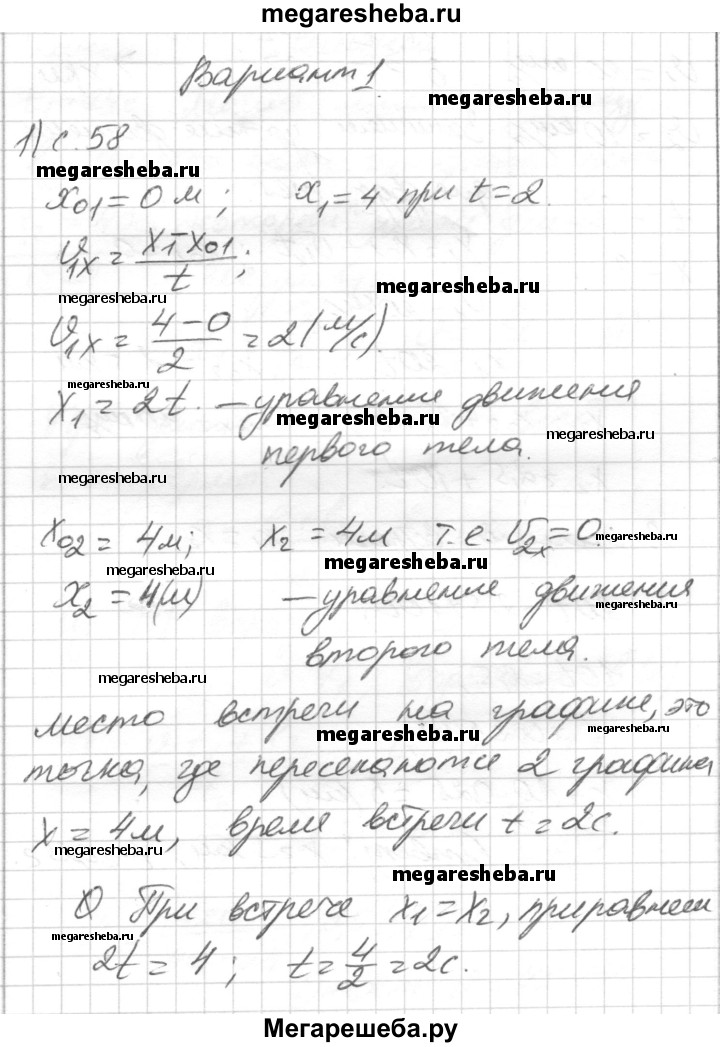 megaresheba.ru
Вариант 1
megaresheba.ru
1) с. 58
megaresheba.ru
x₀₁ = 0 м ; x₁ = 4 при t = 2.
V₁ₓ = (x₁ − x₀₁)/t ;
megaresheba.ru
megaresheba.ru
V₁ₓ = (4 − 0)/2 = 2 (м/с).
megaresheba.ru
x₁ = 2t. — уравнение движения
megaresheba.ru
megaresheba.ru
первого тела.
megaresheba.ru
x₀₂ = 4м; x₂ = 4м т.е. V₂ₓ = 0.
megaresheba.ru
megaresheba.ru
megaresheba.ru
x₂ = 4(м) — уравнение движения
megaresheba.ru
второго тела.
megaresheba.ru
место встречи на графике, это
megaresheba.ru
megaresheba.ru
точка, где пересекаются 2 графика
x = 4м, время встречи t = 2с.
megaresheba.ru
megaresheba.ru
При встрече x₁ = x₂, приравняем
megaresheba.ru
2t = 4 ; t = 4/2 = 2с.
Мегарешеба.ру